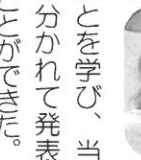 とを学び、当
分かれて発表
ことができた。